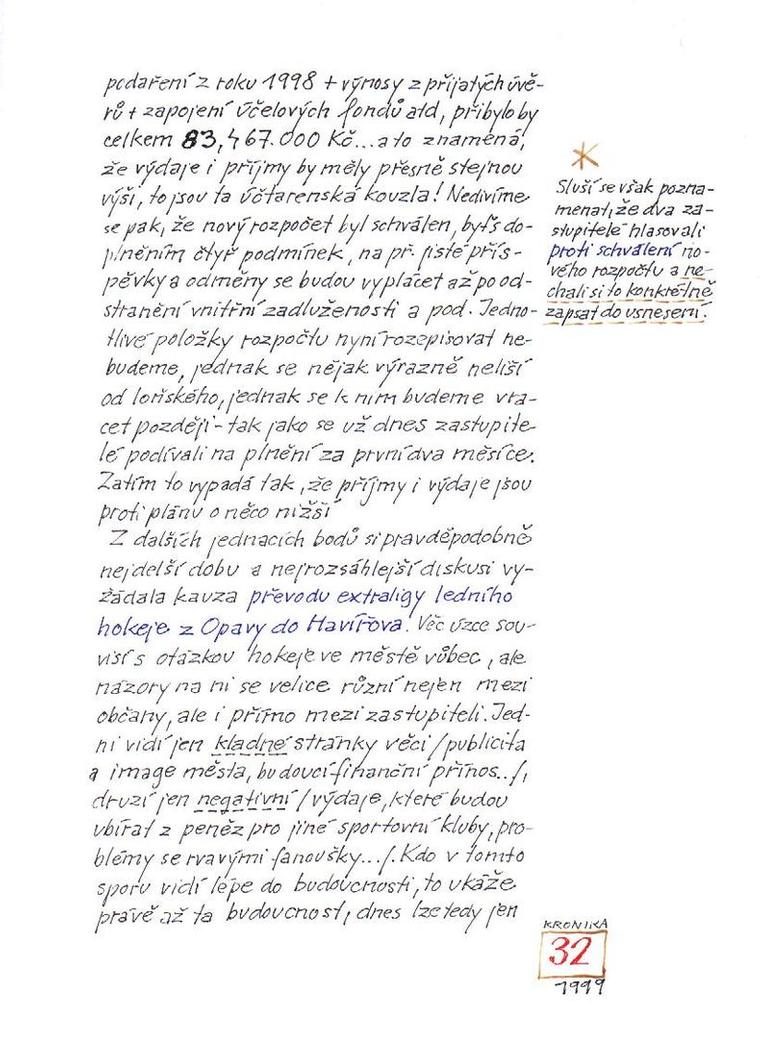 podaření z roku 1998 + výnosy z přijatých úvě-
rů + zapojení účelových fondů atd, přibylo by
celkem 83,467.000 Kč...a to znamená,
že výdaje i příjmy by měly přesně stejnou
výši, to jsou ta účtarenská kouzla! Nedivíme
se pak, že nový rozpočet byl schválen, byť s do-
plněním čtyř podmínek, na př. jisté přís-
pěvky a odměny se budou vyplácet až po od-
stranění vnitřní zadluženosti a pod. Jedno-
tlivé položky rozpočtu nyní rozepisovat ne-
budeme, jednak se nějak výrazně neliší
od loňského, jednak se k nim budeme vra-
cet později - tak jako se už dnes zastupite-
lé podívali na plnění za první dva měsíce.
Zatím to vypadá tak, že příjmy i výdaje jsou
proti plánu o něco nižší
Z dalších jednacích bodů si pravděpodobně
nejdelší dobu a nejrozsáhlejší diskusi vy-
žádala kauza převodu extraligy ledního
hokeje z Opavy do Havířova. Věc úzce sou-
visí s otázkou hokeje ve městě vůbec, ale
názory na ni se velice různí nejen mezi
občany, ale i přímo mezi zastupiteli. Jed-
ni vidí jen kladné stránky věci /publicita
a image města, budoucí finanční přínos../,
druzí jen negativní /výdaje, které budou
ubírat z peněz pro jiné sportovní kluby, pro-
blémy se rvavými fanoušky.../. Kdo v tomto
sporu vidí lépe do budoucnosti, to ukáže
právě až ta budoucnost, dnes lze tedy jen
*
Sluší se však pozna-
menat, že dva za-
stupitelé hlasovali
proti schválení no-
vého rozpočtu a ne-
chali si to konkrétně
zapsat do usnesení.
KRONIKA
32
1999